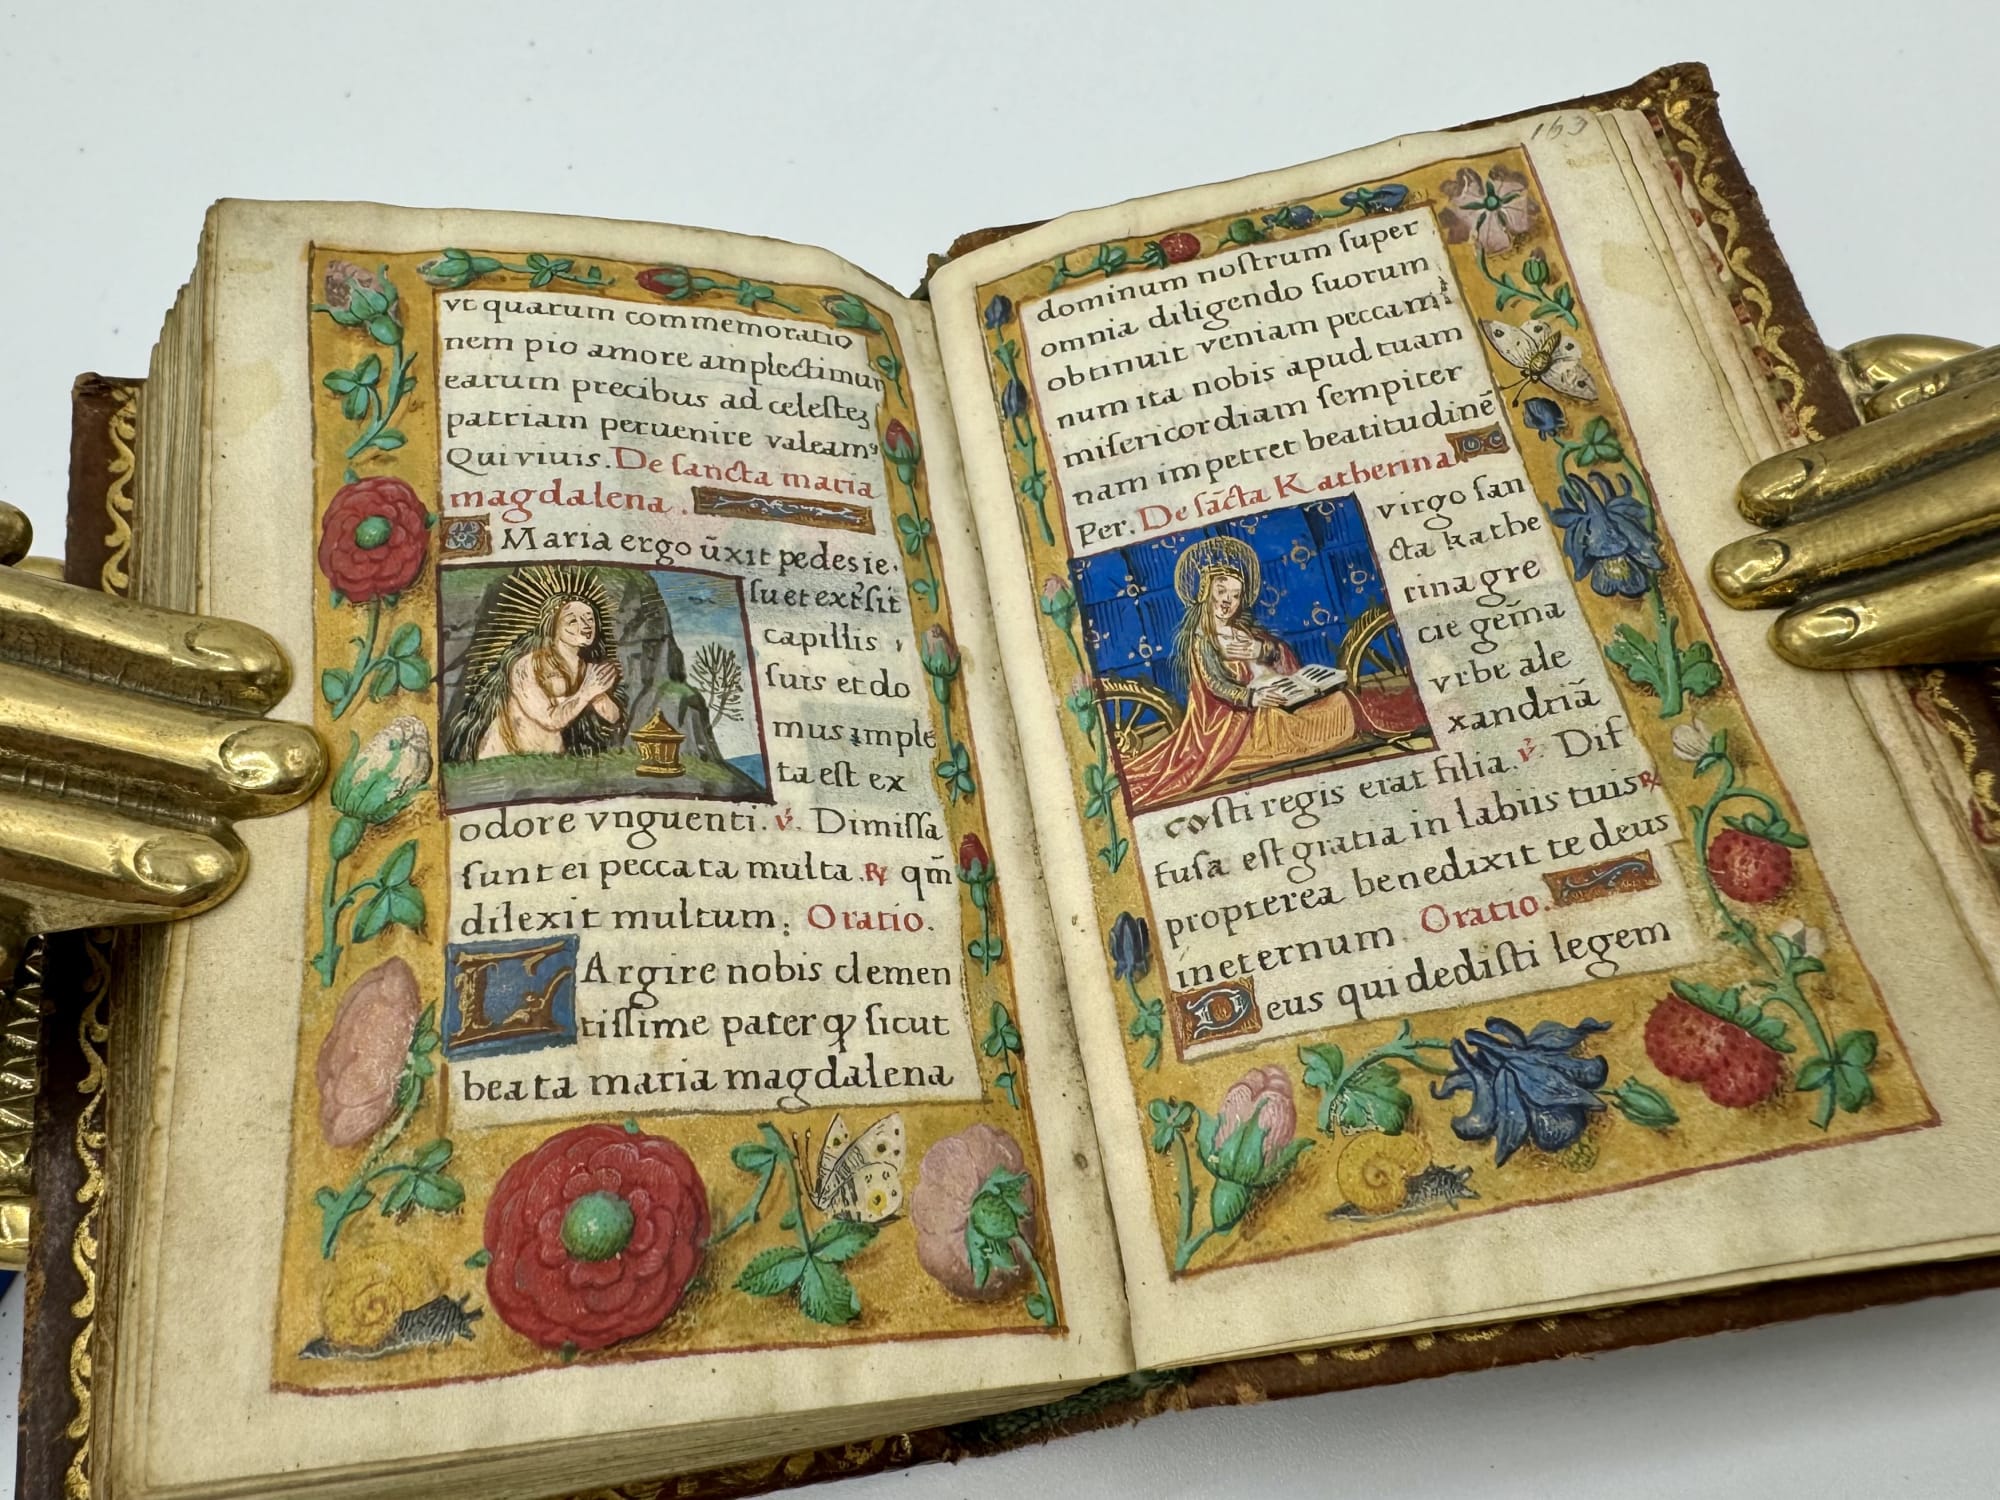 vt quarum commemoratio
nem pio amore amplectimur
earum precibus ad celesteʒ
patriam peruenire valeamꝰ
Qui viuis. De ſancta maria
magdalena.
Maria ergo ūxit pedes ie
ſu et extſit
capillis
ſuis et do
mus imple
ta eſt ex
odore vnguenti. ℣. Dimiſſa
ſunt ei peccata multa. ℟ qm̄
dilexit multum: Oratio.
LArgire nobis clemen
tiſſime pater ꝙ ſicut
beata maria magdalena
163
dominum noſtrum ſuper
omnia diligendo ſuorum
obtinuit veniam peccami
num ita nobis apud tuam
miſericordiam ſempiter
nam impetret beatitudinē
Per. De ſācta Katherina
virgo ſan
cta kathe
rina gre
cie gem̄a
vrbe ale
xandriā
coſti regis erat filia. ℣. Dif
fuſa eſt gratia in labiis tuis ℟
propterea benedixit te deus
ineternum. Oratio.
Deus qui dediſti legem